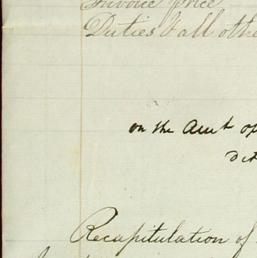 Invoice price
Duties & all othe
on the Amt of
Recapitulation of